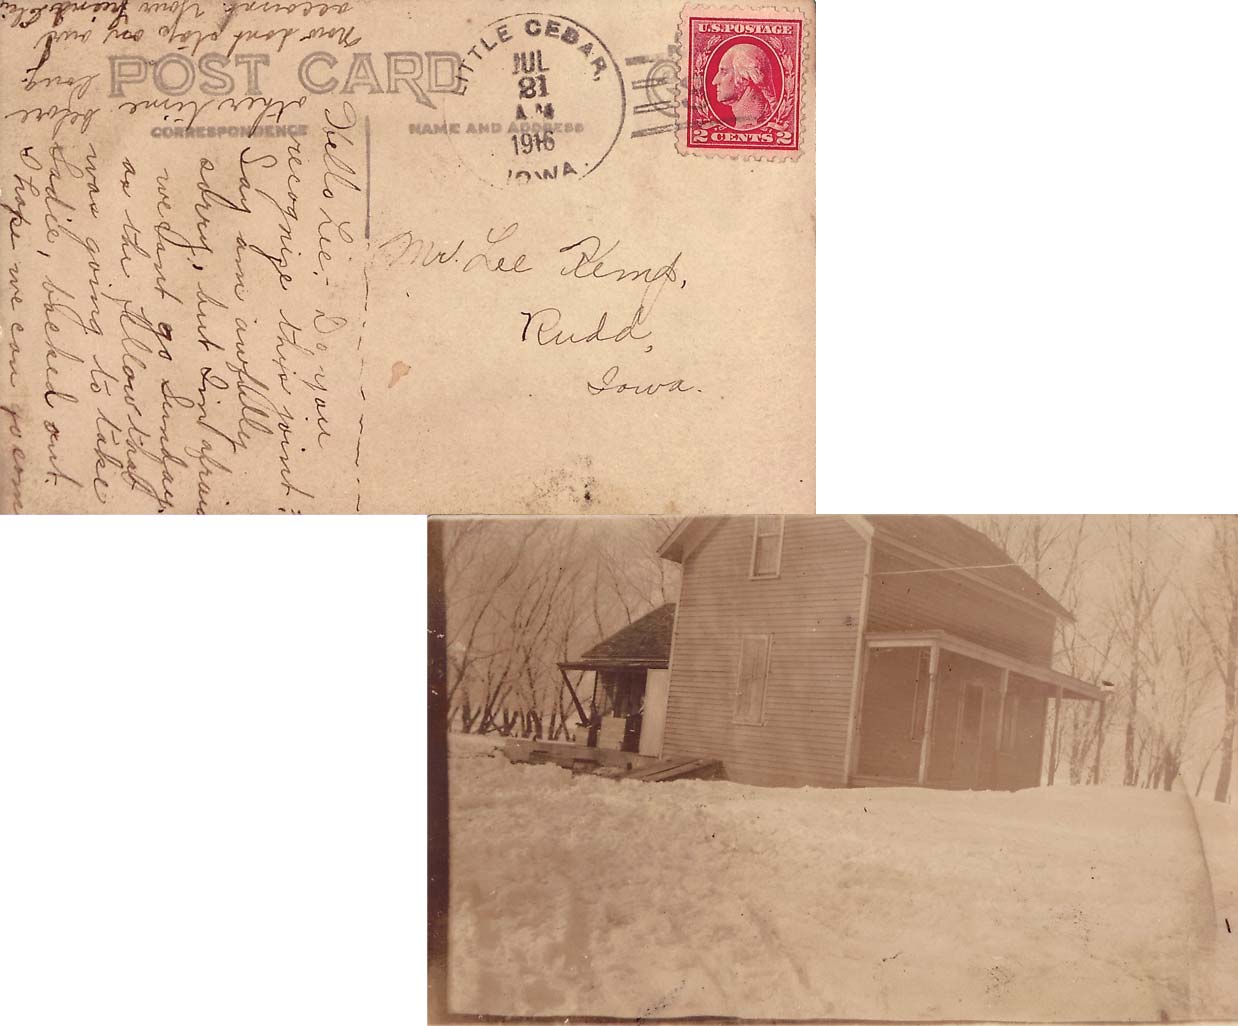 POST CARD
CORRESPONDENCE
NAME AND ADDRESS
LITTLE CEDAR,
JUL
21
A M
1916
IOWA.
U.S. POSTAGE
2 CENTS 2
Mr. Lee Kemp,
Rudd,
Iowa.
Hello Lee:- Do you
recognize this joint?
Say am awfully
sorry, but I'm afraid
we can't go Sunday,
as the fellow that
was going to take
Sadie, backed out.
I hope we can go some
other time before long.
Now dont stop on our
account. Your friend